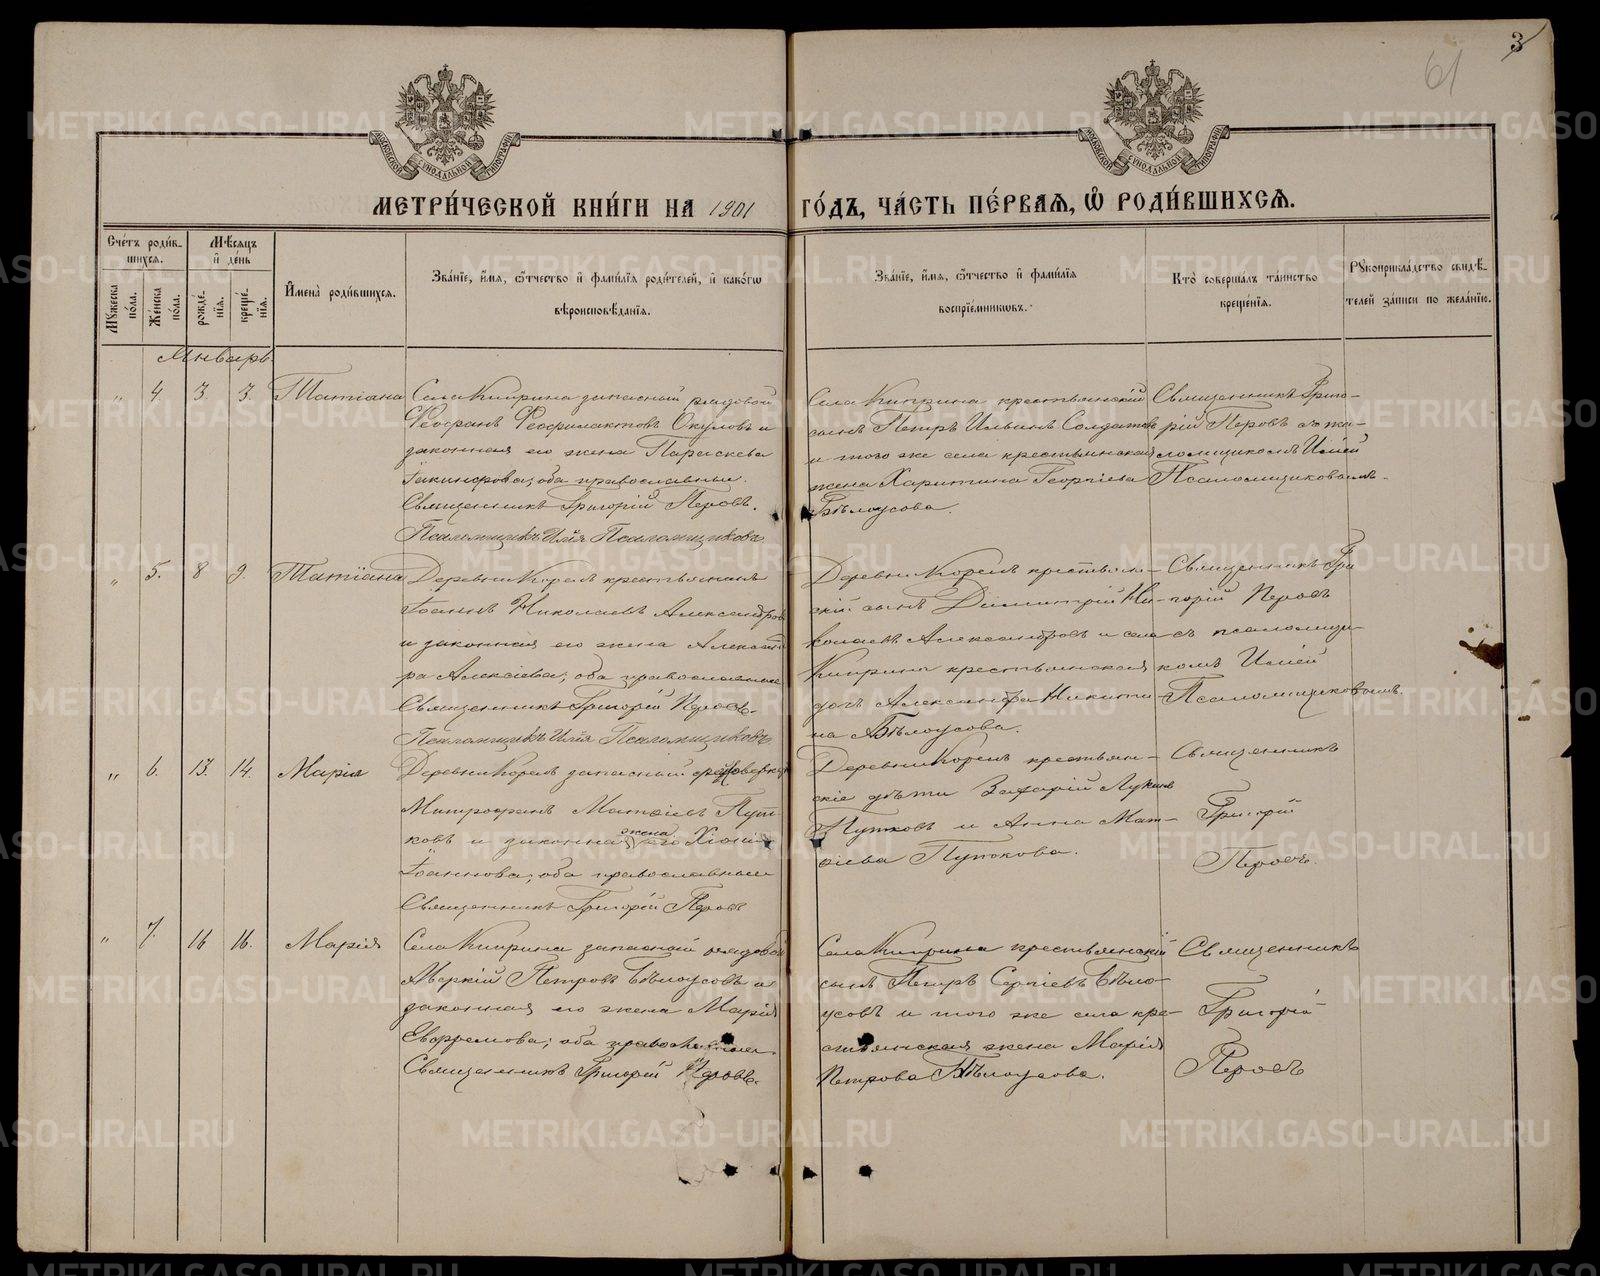 3
61
МОСКОВСКОЙ СѴНОДАЛЬНОЙ ТИПОГРАФІИ
МОСКОВСКОЙ СѴНОДАЛЬНОЙ ТИПОГРАФІИ
МЕТРИ́ЧЕСКОЙ КНИ́ГИ НА 1901 ГО́ДЪ, ЧА́СТЬ ПЕ́РВАѦ, Ѡ҆ РОДИ́ВШИХСѦ.
Сче́тъ роди́в-
шихсѧ.
Мꙋжеска по́ла.
Же́нска по́ла.
Мѣ́сѧцъ и҆ де́нь
рожде́-нїѧ.
креще́-нїѧ.
И҆мена̀ роди́вшихсѧ.
Зва́нїе, и҆́мѧ, ѻ҆́тчество и҆ фами́лїѧ роди́телей, и҆ како́гѡ
вѣроисповѣ́данїѧ.
Зва́нїе, и҆́мѧ, ѻ҆́тчество и҆ фами́лїѧ
воспрїе́мникѡвъ.
Кто̀ соверша́лъ та́инство
креще́нїѧ.
Рꙋкоприкла́дство свидѣ́-
телей за́писи по жела́нїю.
Январь
" 4 3. 3. Татіана
Села Киприна запасный рядовой
Ѳеофанъ Ѳеофилактовъ Окуловъ и
законная его жена Параскева
Іакинфова; оба православные.
Священникъ Григорій Перовъ.
Псаломщикъ Илія Псаломщиковъ
Села Киприна крестьянскій
сынъ Петръ Ильинъ Солдатовъ
и того же села крестьянская
жена Харитина Георгіева
Бѣлоусова.
Священникъ Григо-
рій Перовъ съ пса-
ломщикомъ Иліей
Псаломщиковымъ.
" 5. 8 9. Татіана
Деревни Корелъ крестьянинъ
Іоаннъ Николаевъ Александровъ
и законная его жена Александ
ра Алексіева; оба православные
Священникъ Григорій Перовъ.
Псаломщикъ Илія Псаломщиковъ
Деревни Корелъ крестьян-
скій сынъ Димитрій Ни-
колаевъ Александровъ и села
Киприна крестьянская
дочь Александра Никити-
на Бѣлоусова.
Священникъ Гри
горій Перовъ
съ псаломщи-
комъ Иліей
Псаломщиковымъ.
" 6. 13. 14. Марія
Деревни Корелъ запасный
Митрофанъ Матѳіевъ Путн
ковъ и законная жена его Хіонія
Іоаннова; оба православные
Священникъ Григорій Перовъ
Деревни Корелъ крестьян-
скіе дѣти Захарій Лукинъ
и Анна Мат-
ѳіева
Священникъ
Григорій
Перовъ.
" 7. 16 16. Марія
Села Киприна запасный рядовой
Маркій Петровъ Бѣлоусовъ и
законная его жена Марія
Евфремова; оба православные.
Священникъ Григорій Перовъ.
Села Киприна крестьянскій
сынъ Петръ Сергіевъ Бѣло-
усовъ и того же села кре-
стьянская жена Марія
Петрова Бѣлоусова.
Священникъ
Григорій
Перовъ
METRIKI.GASO-URAL.RU